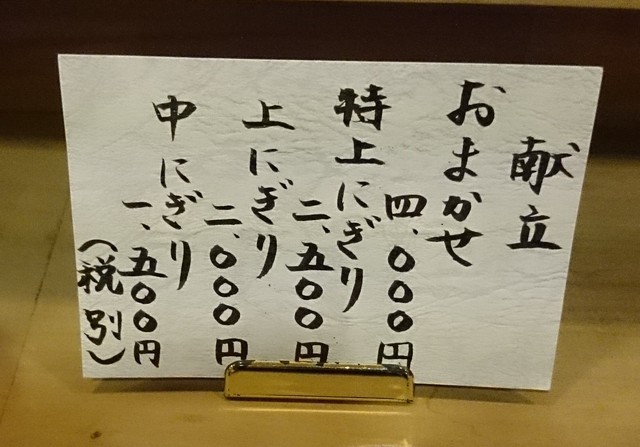 献立
おまかせ
四、〇〇〇円
特上にぎり
二、五〇〇円
上にぎり
二、〇〇〇円
中にぎり
一、五〇〇円
（税別）